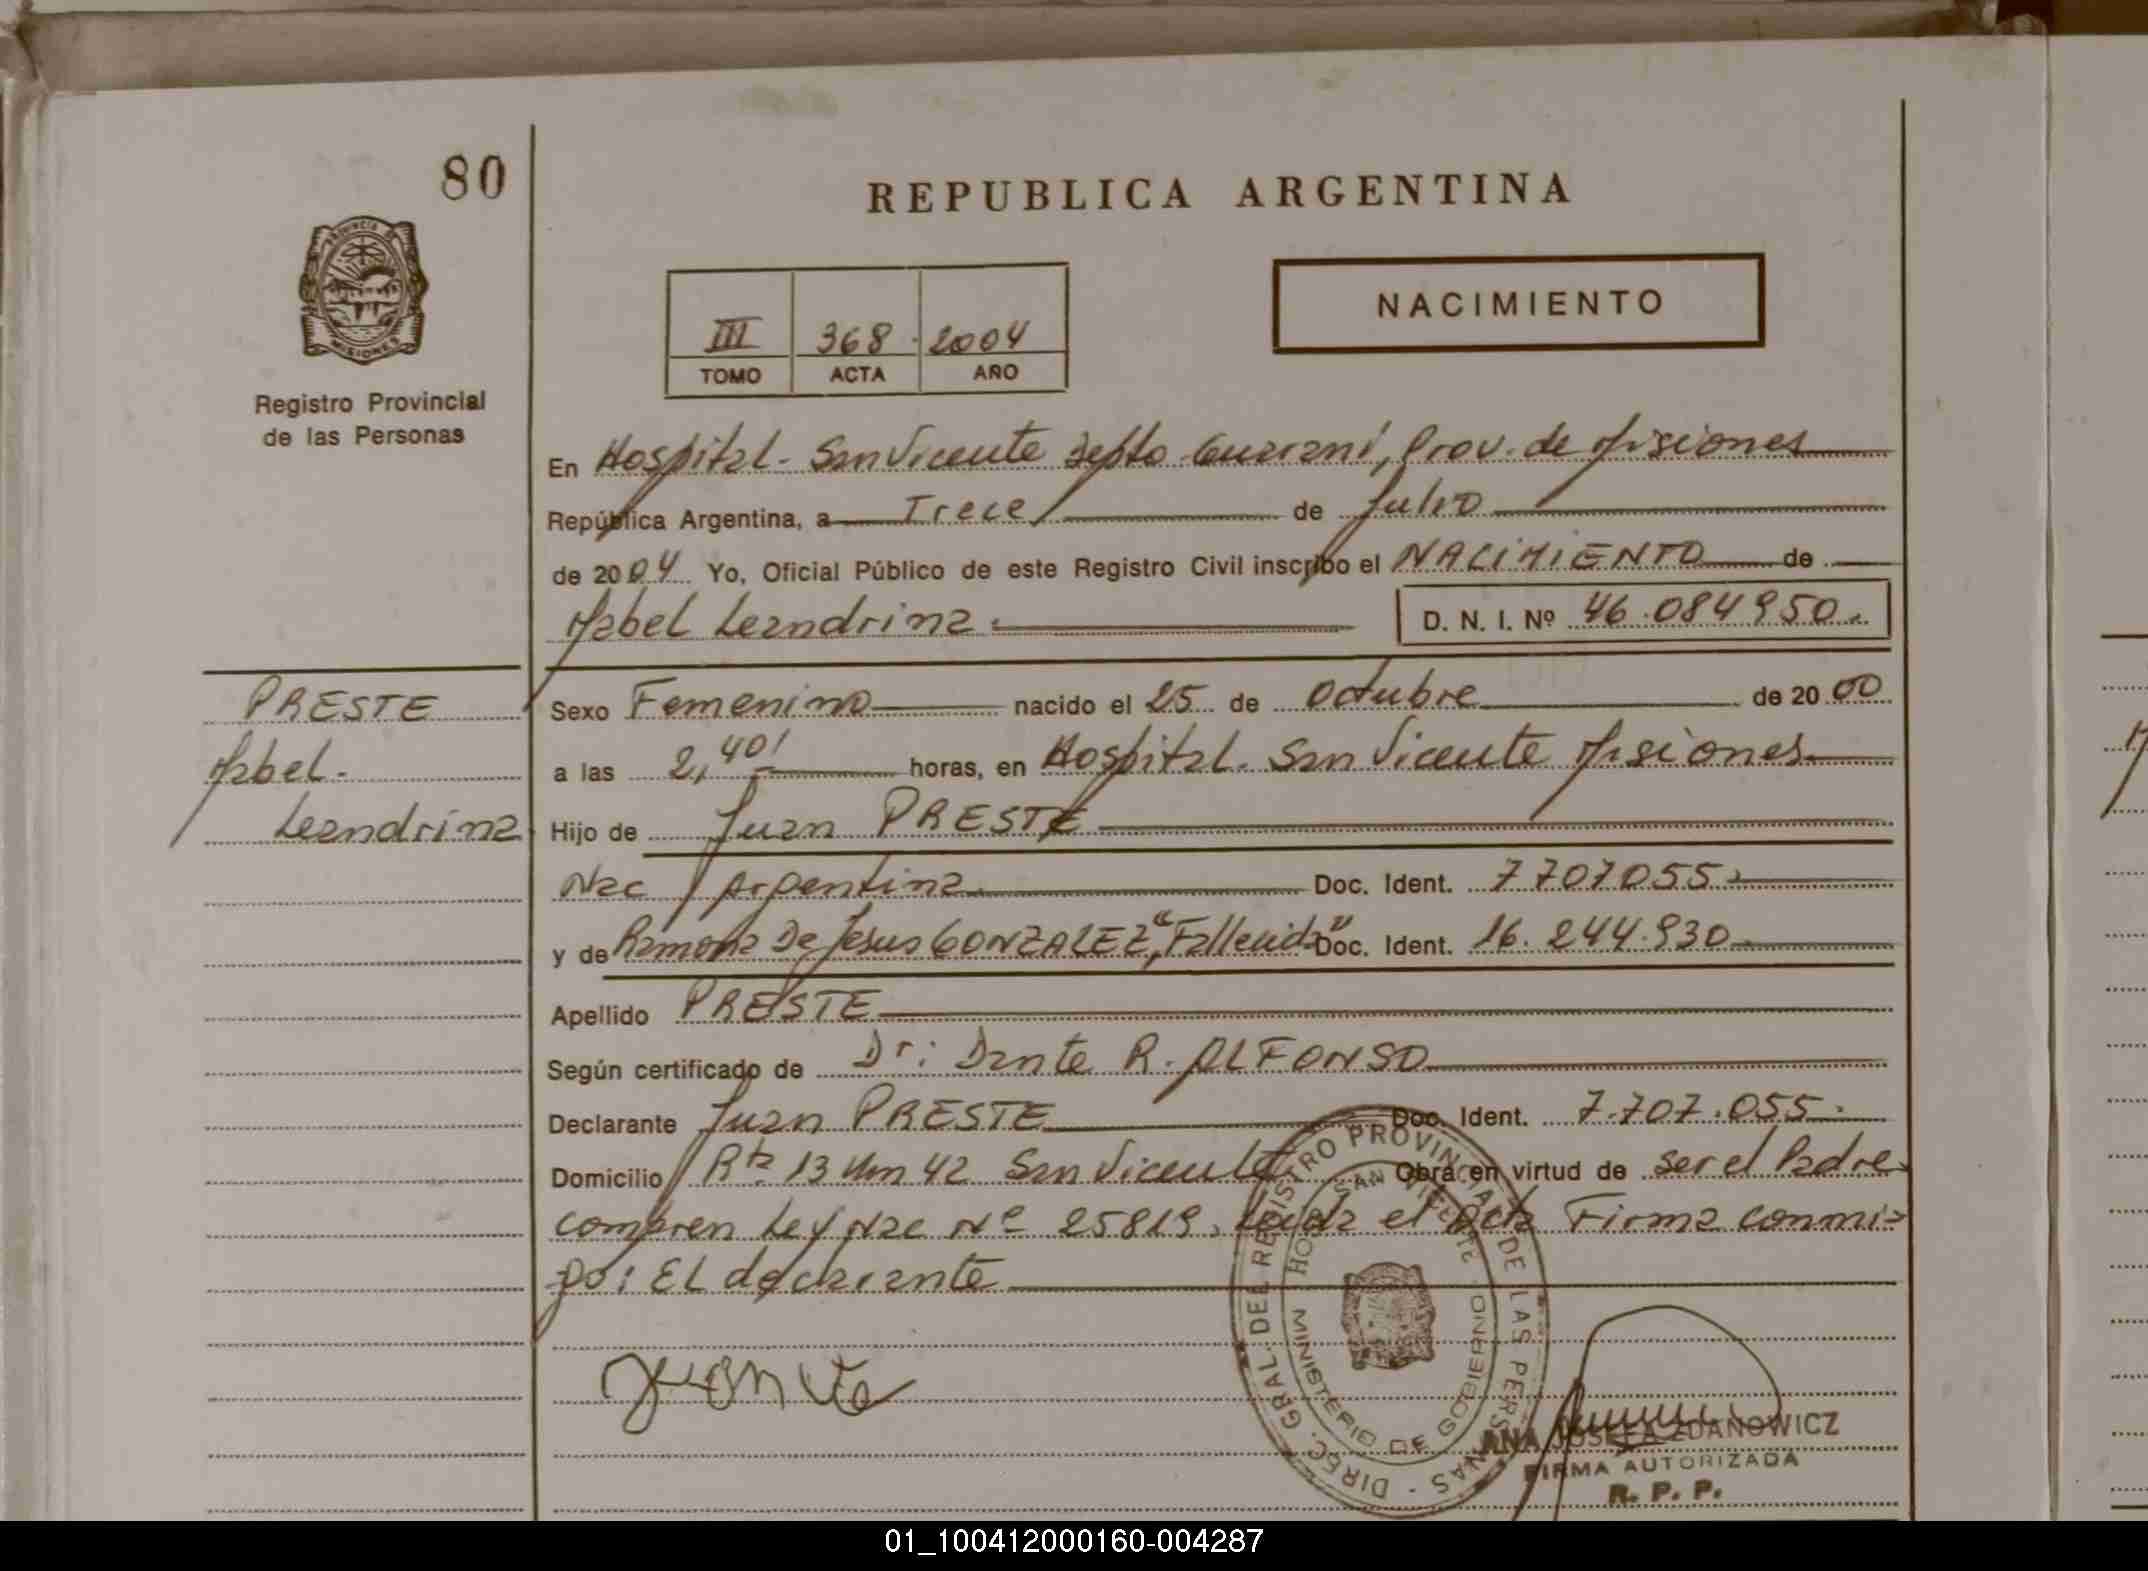 80
REPUBLICA ARGENTINA
PROVINCIA DE
MISIONES
Registro Provincial
de las Personas
III 368 2004
TOMO ACTA AÑO
NACIMIENTO
En Hospital - San Vicente Depto Guarani, Prov. de Misiones
República Argentina, a Trece de Julio
de 2004 Yo, Oficial Público de este Registro Civil inscribo el NACIMIENTO de
Mabel Leandrina
D. N. I. Nº 46.084950
PRESTE
Mabel
Leandrina
Sexo Femenino nacido el 25 de Octubre de 2000
a las 2,40' horas, en Hospital - San Vicente Misiones
Hijo de Juan PRESTE
Nac Argentina Doc. Ident. 7707055
y de Ramona De Jesus GONZALEZ, "Fallecida" Doc. Ident. 16.244.930
Apellido PRESTE
Según certificado de Dr: Dante R. ALFONSO
Declarante Juan PRESTE Doc. Ident. 7.707.055
Domicilio Rta 13 Km 42 San Vicente Obra en virtud de ser el Padre
compren Ley Nac Nº 25819, Leida el acta Firma conmi-
go: El declarante
DIREC. GRAL. DEL REGISTRO PROVINCIAL DE LAS PERSONAS
MINISTERIO DE GOBIERNO
SAN VICENTE
ANA JOSEFA ZDANOWICZ
FIRMA AUTORIZADA
R. P. P.
01_100412000160-004287